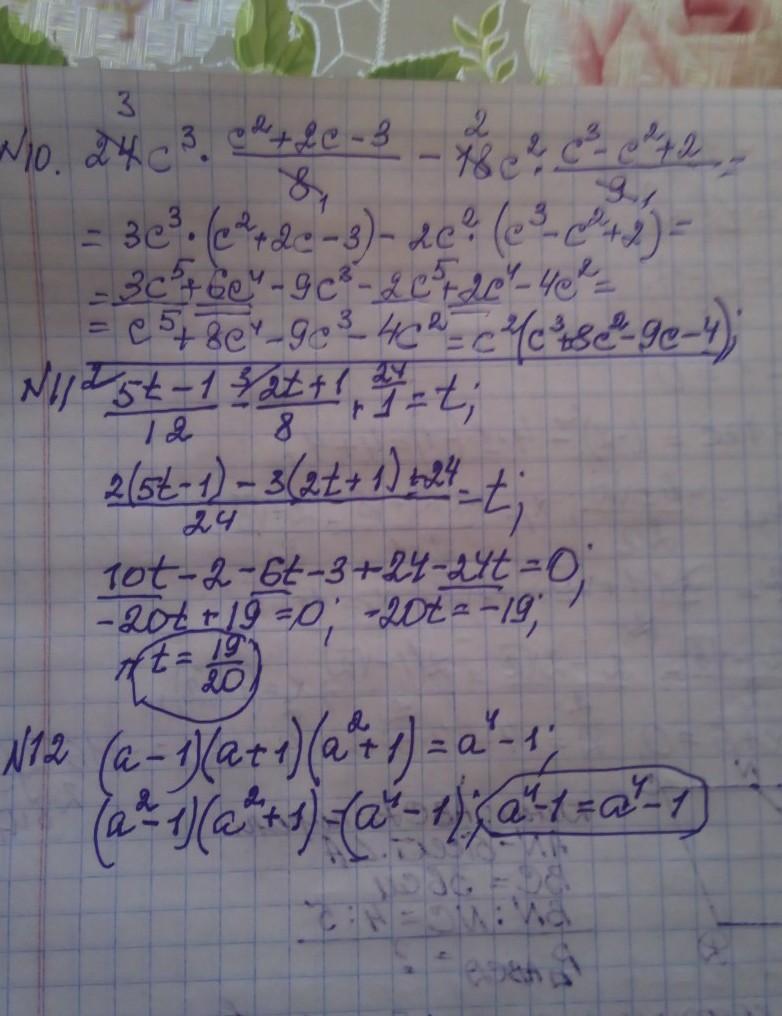 3 2
N10. 24c³ · (c²+2c-3)/8₁ - 18c² · (c³-c²+2)/9₁ =
= 3c³·(c²+2c-3)-2c²·(c³-c²+2)=
= 3c⁵+6c⁴-9c³-2c⁵+2c⁴-4c²=
= c⁵+8c⁴-9c³-4c²=c²(c³+8c²-9c-4);
N11 2/ (5t-1)/12 - 3/ (2t+1)/8 + 24/ 1=t;
(2(5t-1)-3(2t+1)+24)/24=t;
10t-2-6t-3+24-24t=0;
-20t+19=0; -20t=-19;
t=19/20
N12 (a-1)(a+1)(a²+1)=a⁴-1;
(a²-1)(a²+1)=(a⁴-1); a⁴-1=a⁴-1